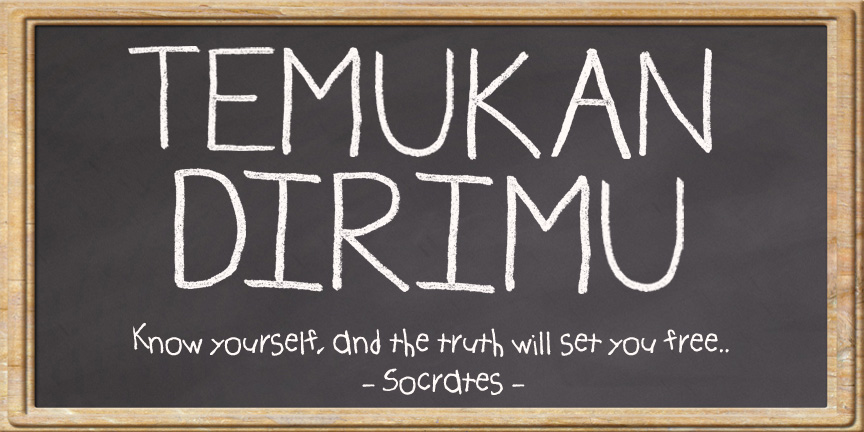 TEMUKAN
DIRIMU
Know yourself, and the truth will set you free..
- Socrates -